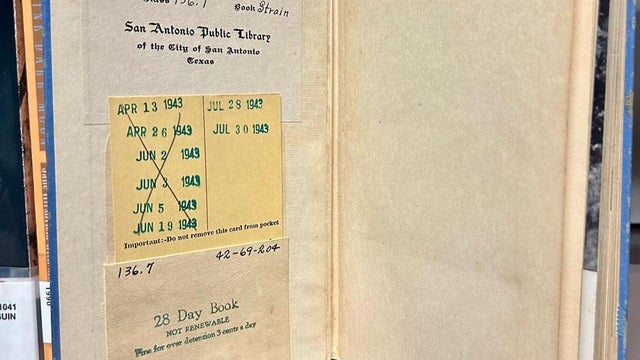 136.7 Book Strain
San Antonio Public Library
of the City of San Antonio
Texas
APR 13 1943
APR 26 1943
JUN 2 1943
JUN 3 1943
JUN 5 1943
JUN 19 1943
JUL 28 1943
JUL 30 1943
Important:-Do not remove this card from pocket
136.7 42-69-204
28 Day Book
NOT RENEWABLE
Fine for over detention 3 cents a day
1041
UIN
1990